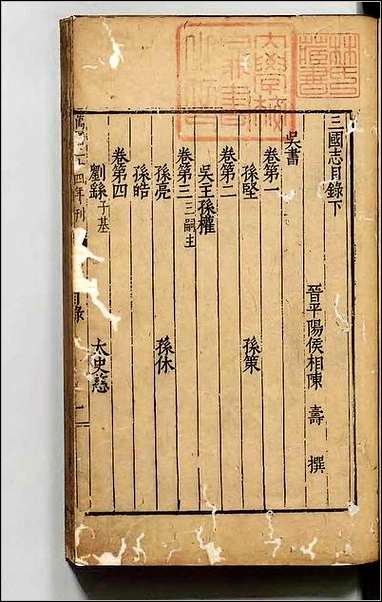 三國志目錄下
晉平陽侯相陳壽撰
吳書
卷第一
孫堅 孫策
卷第二
吳王孫權
卷第三 三嗣主
孫亮 孫休
孫皓
卷第四
劉繇 子基 太史慈
四年刊
目錄
林氏藏書